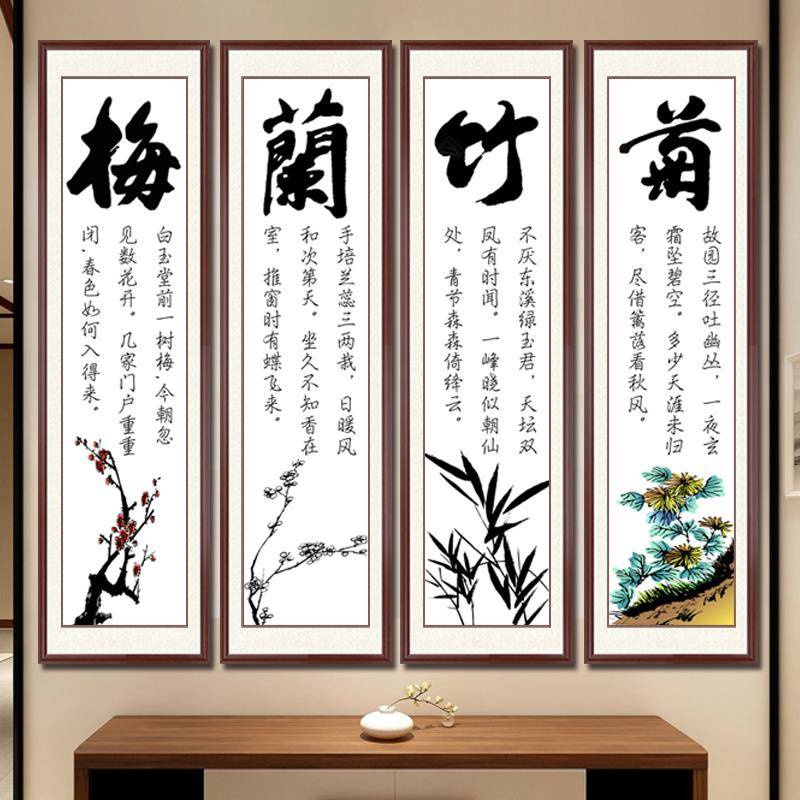 梅
白玉堂前一树梅·今朝忽
见数花开。几家门户重重
闭·春色如何入得来。
蘭
手培兰蕊三两栽，日暖风
和次第天。坐久不知香在
室，推窗时有蝶飞来。
竹
不厌东溪绿玉君，天坛双
凤有时闻。一峰晓似朝仙
处，青节森森倚绛云。
菊
故园三径吐幽丛，一夜玄
霜坠碧空。多少天涯未归
客，尽借篱落看秋风。